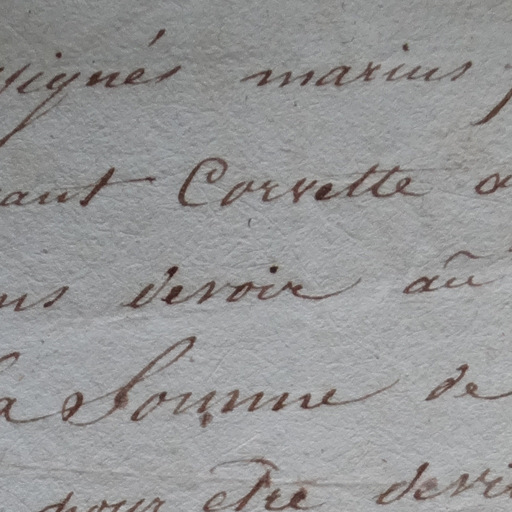 signés marius
ant Corvette
ns devoir au
la Somme de
pour etre